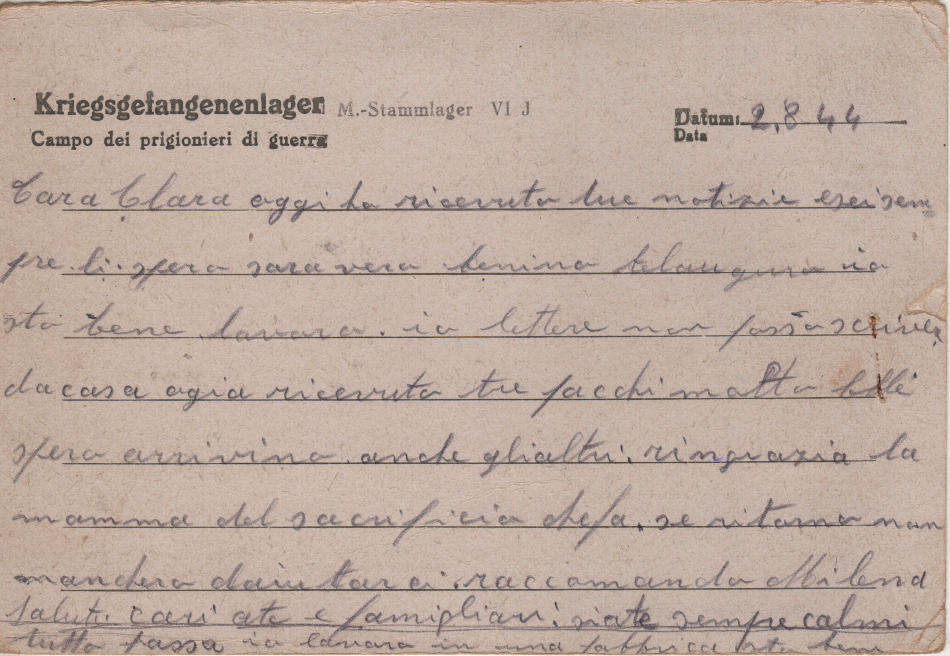 Kriegsgefangenenlager M.-Stammlager VI J
Campo dei prigionieri di guerra
Datum: 2.8 44
Data
Cara Clara oggi ho ricevuto tue notizie e sei sem
pre li. spero sara vero benino telauguro io
sto bene lavoro. io lettere non posso scriver
da casa ogia ricevuto tre pacchi molto belli
spero arrivino anche glialtri. ringrazia la
mamma del sacrificio chefa. se ritorno non
manchero daiutarci. raccomando Milena
saluti cari ate e famigliari. siate sempre calmi
tutto passa io lavoro in una fabbrica sto bene